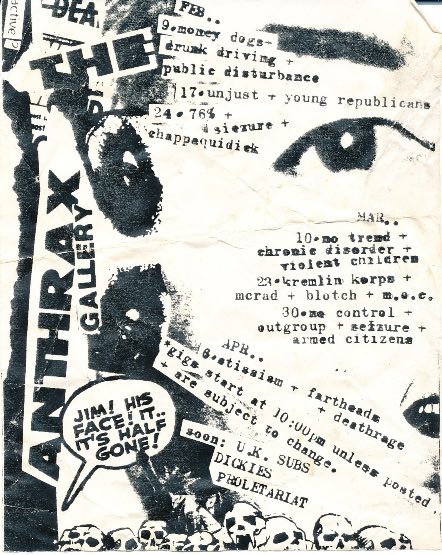 active
DEA
THE
ANTHRAX
GALLERY
FEB..
9•money dogs+
drunk driving +
public disturbance
17•unjust + young republicans
24•76% +
seizure +
chappaquidick
MAR..
10•no trend +
chronic disorder +
violent children
23•kremlin korps +
mcrad + blotch + m.o.c.
30•no control +
outgroup + seizure +
armed citizens
APR..
6•stissism + fartheads
+ deathrage
*gigs start at 10:00pm unless posted
+ are subject to change.
soon: U.K. SUBS
DICKIES
PROLETARIAT
JIM! HIS
FACE! IT..
IT'S HALF
GONE!